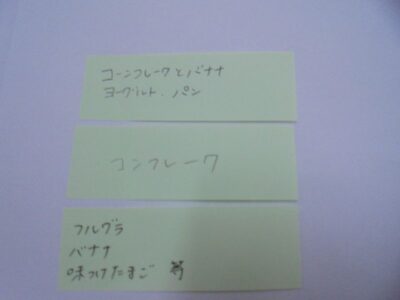 コーンフレークとバナナ
ヨーグルト．パン
コンフレーク
フルグラ
バナナ
味つけたまご 等